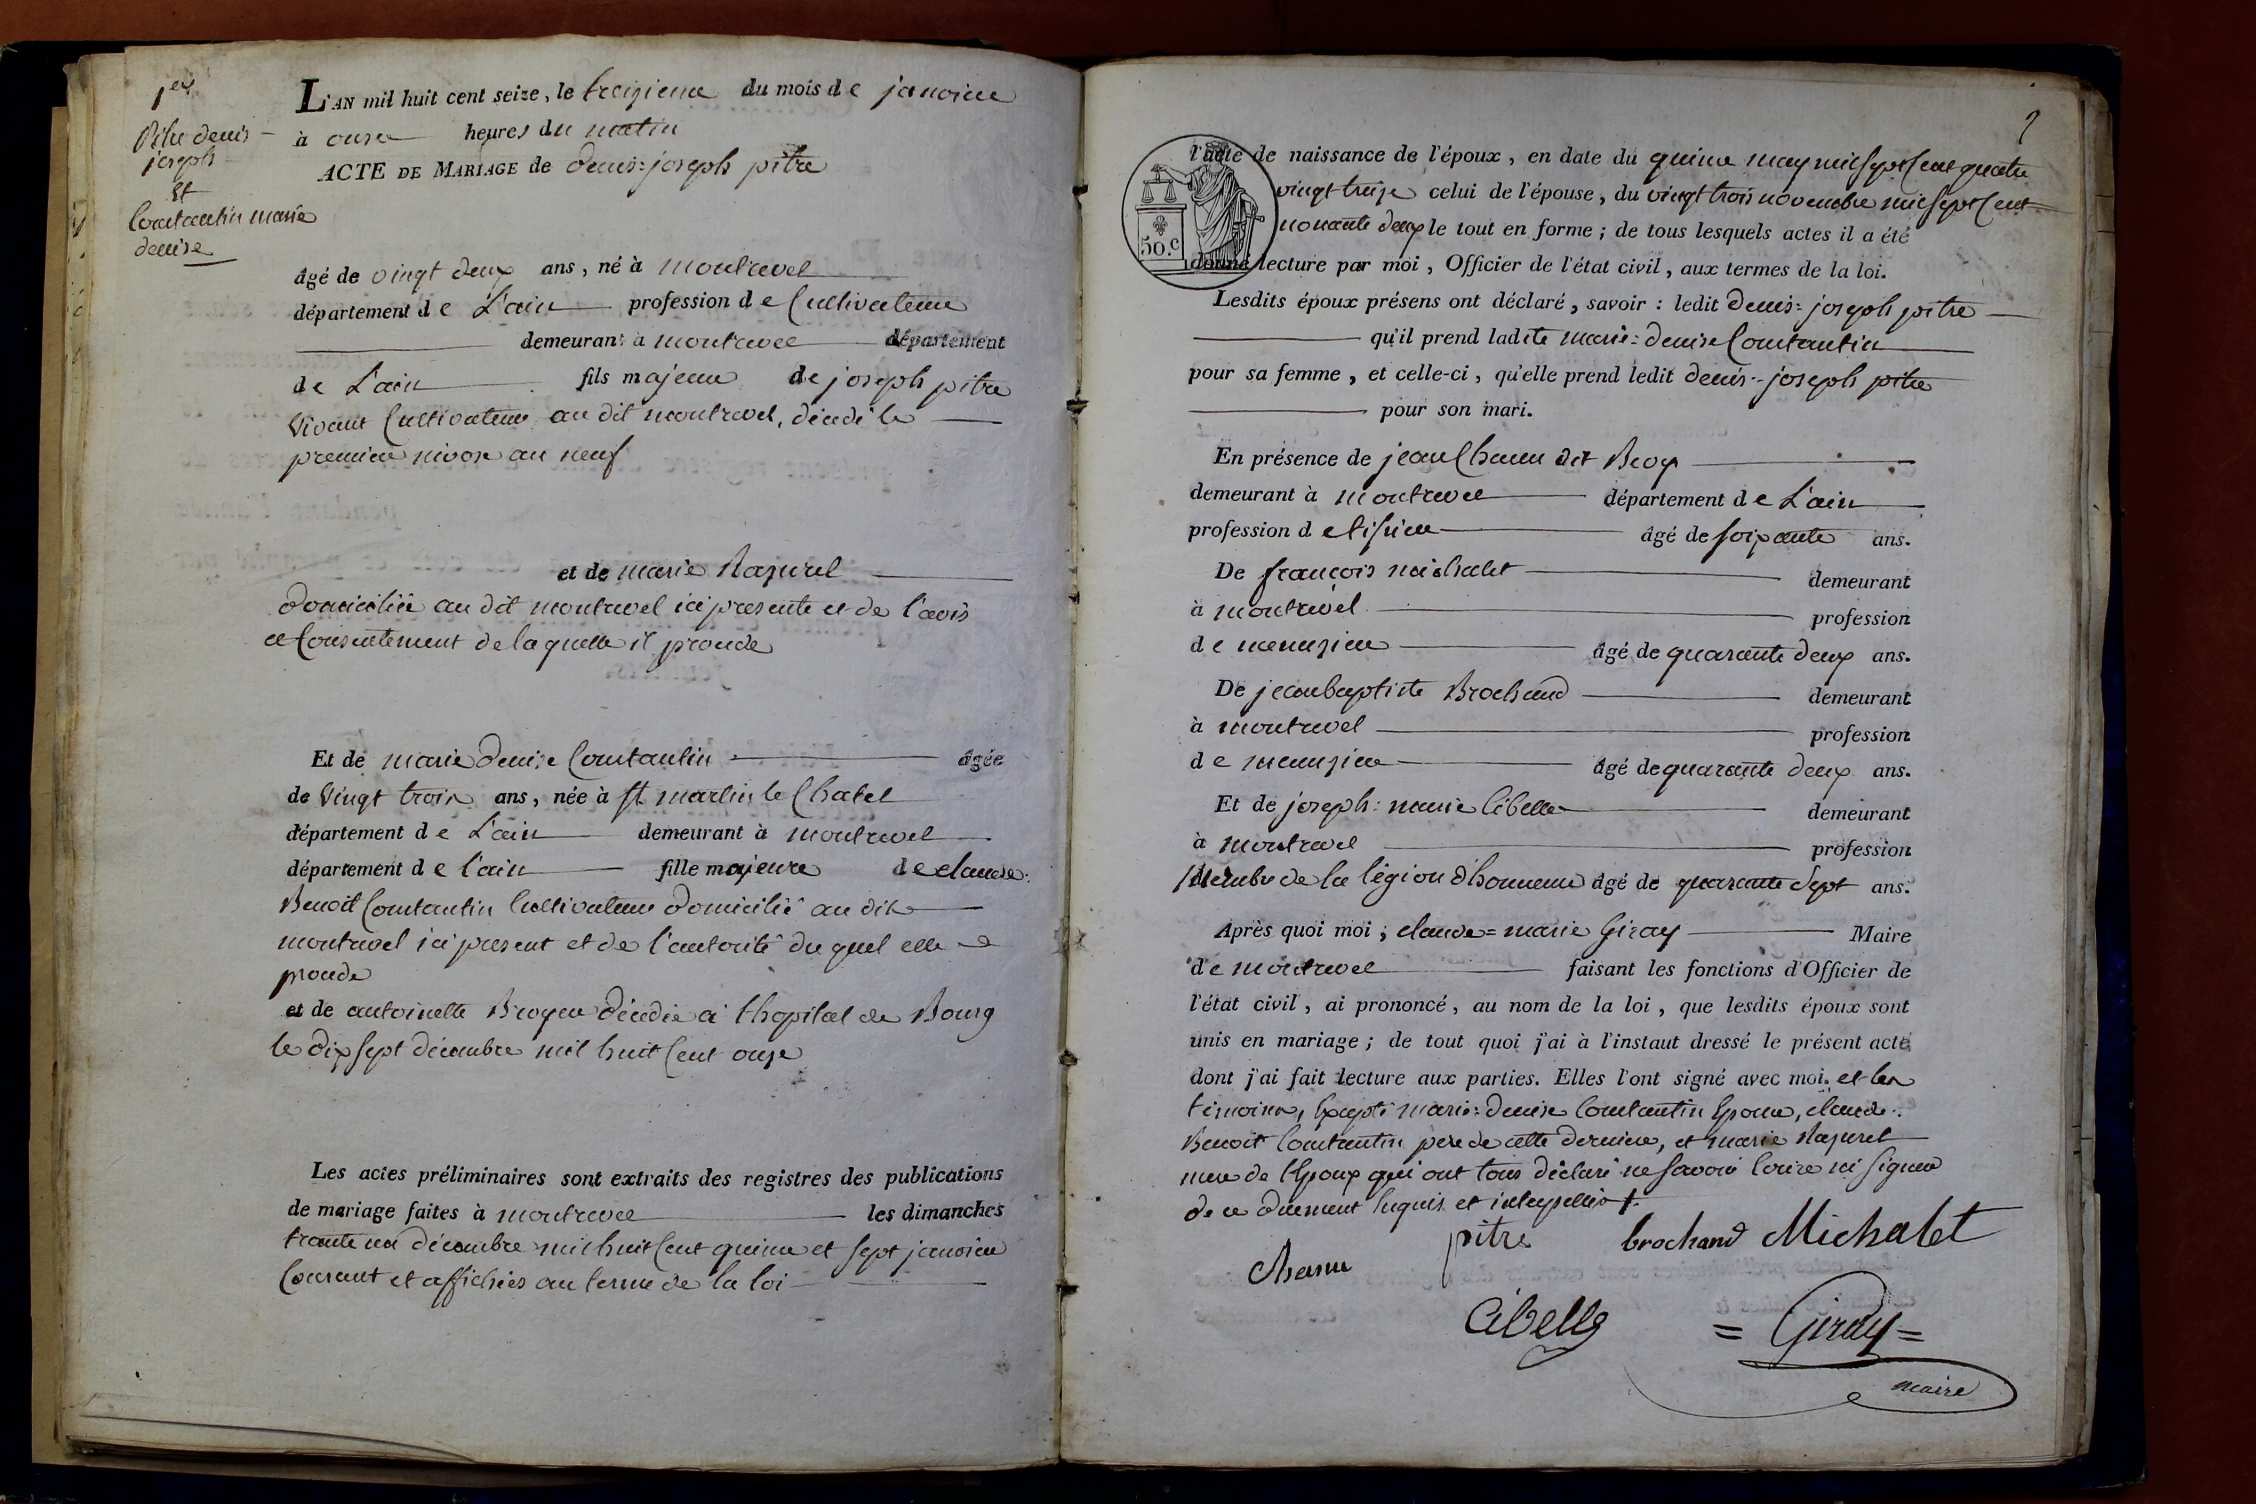 1er
Pitre denis
joseph
Et
Constantin marie
denise
L'AN mil huit cent seize, le treizieme du mois de janvier
à onze heures du matin
ACTE DE MARIAGE de denis=joseph pitre
âgé de vingt deux ans, né à montrevel
département de L'ain profession de Cultivateur
demeurant à montrevel département
de L'ain fils majeur de joseph pitre
vivant Cultivateur au dit montrevel, décédé le
premier nivose an neuf
et de marie Razurel
domiciliée au dit montrevel ici presente et de l'avis
et Consentement de laquelle il procede
Et de marie denise Constantin âgée
de Vingt trois ans, née à st martin le Chatel
département de L'ain demeurant à montrevel
département de l'ain fille majeure de claude=
Benoit Constantin Cultivateur domicilié au dit
montrevel ici present et de l'autorité du quel elle
procede
et de antoinette Broyer décédée à l'hopital de Bourg
le dix sept décembre mil huit Cent onze
Les actes préliminaires sont extraits des registres des publications
de mariage faites à montrevel les dimanches
trente un décembre mil huit Cent quinze et sept janvier
Courant et affichées au terme de la loi
2
l'acte de naissance de l'époux, en date du quinze may mil sept Cent quatre
vingt treize celui de l'épouse, du vingt trois novembre mil sept Cent
nonante deux le tout en forme; de tous lesquels actes il a été
50.c
donné lecture par moi, Officier de l'état civil, aux termes de la loi.
Lesdits époux présens ont déclaré, savoir: ledit Denis=joseph pitre
qu'il prend ladite marie=denise Constantin
pour sa femme, et celle-ci, qu'elle prend ledit denis=joseph pitre
pour son mari.
En présence de jean Chanu dit Broy
demeurant à montrevel département de L'ain
profession de tisseur âgé de soixante ans.
De françois michalet demeurant
à montrevel profession
de menuzier âgé de quarante deux ans.
De jean baptiste Brochand demeurant
à montrevel profession
de menuzier âgé de quarante deux ans.
Et de joseph=marie Cibelle demeurant
à montrevel profession
Membre de la légion d'honneur âgé de quarante sept ans.
Après quoi moi, claude=marie Giray Maire
de montrevel faisant les fonctions d'Officier de
l'état civil, ai prononcé, au nom de la loi, que lesdits époux sont
unis en mariage; de tout quoi j'ai à l'instaut dressé le présent acte
dont j'ai fait lecture aux parties. Elles l'ont signé avec moi. et les
témoins, Excepté marie=denise Constantin Epouse, claude=
Benoit Constantin pere de cette derniere, et marie Razurel
mere de l'Epoux qui ont tous déclaré ne savoir écrire ni signer
de ce duement Enquis et interpellés
pitre brochand Michalet
Chanu
Cibelle = Giray =
maire